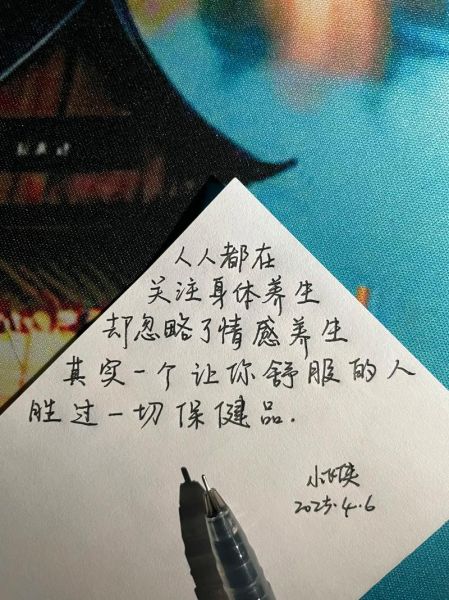 人人都在
关注身体养生
却忽略了情感养生
其实一个让你舒服的人
胜过一切保健品.
2025.4.6